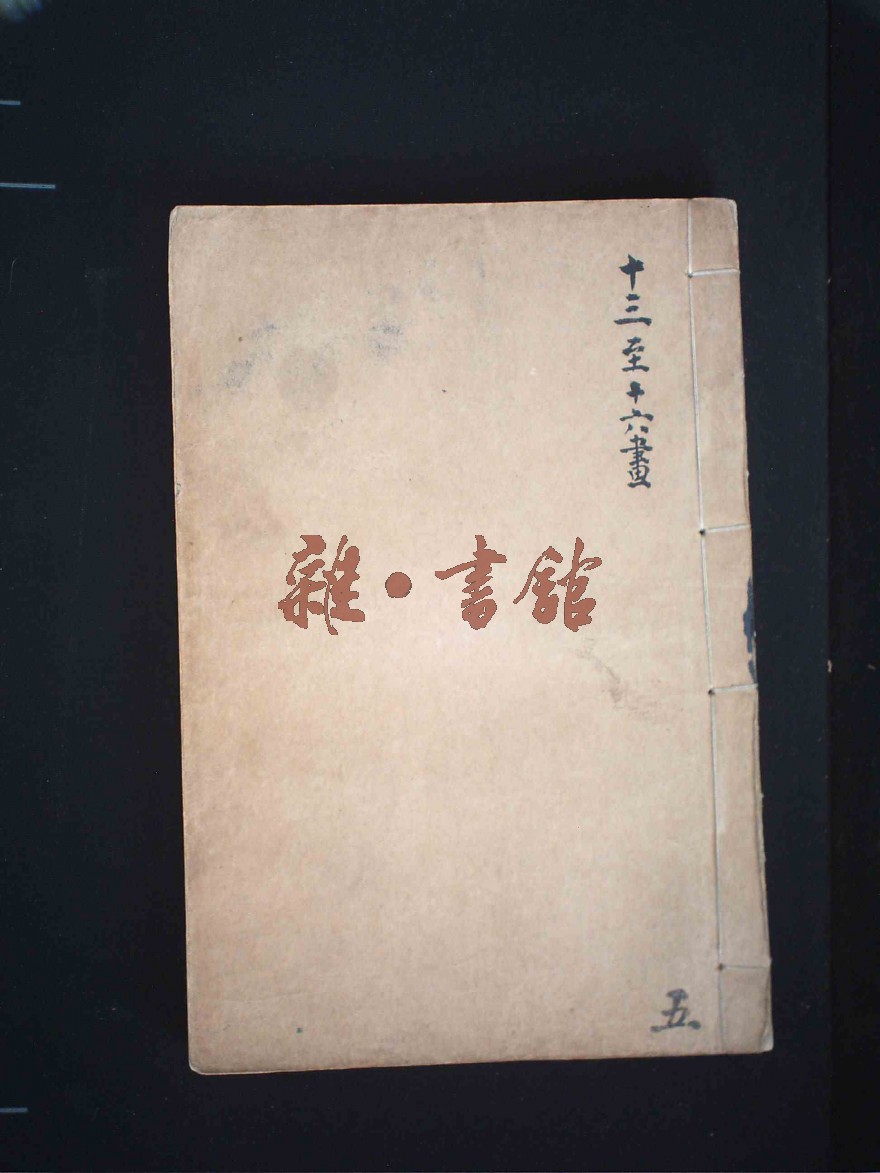 十三至十六畫
雜·書館
五